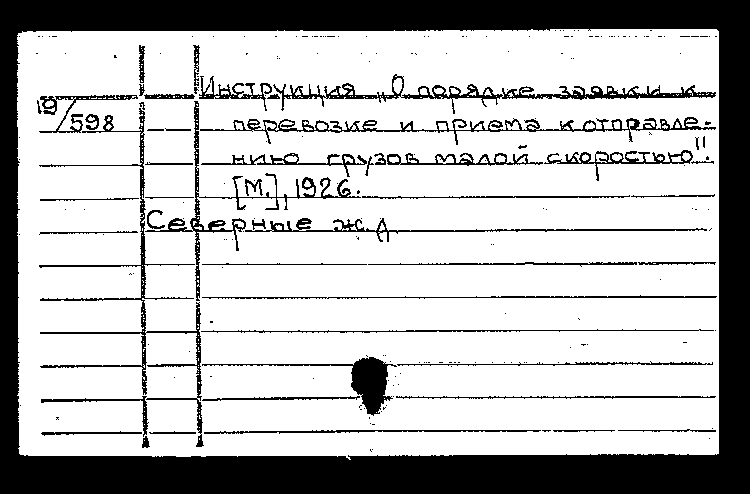 Инструкция „О порядке заявки к
19/598
перевозке и приема к отправле-
нию грузов малой скоростью".
[М.], 1926.
Северные ж. д.